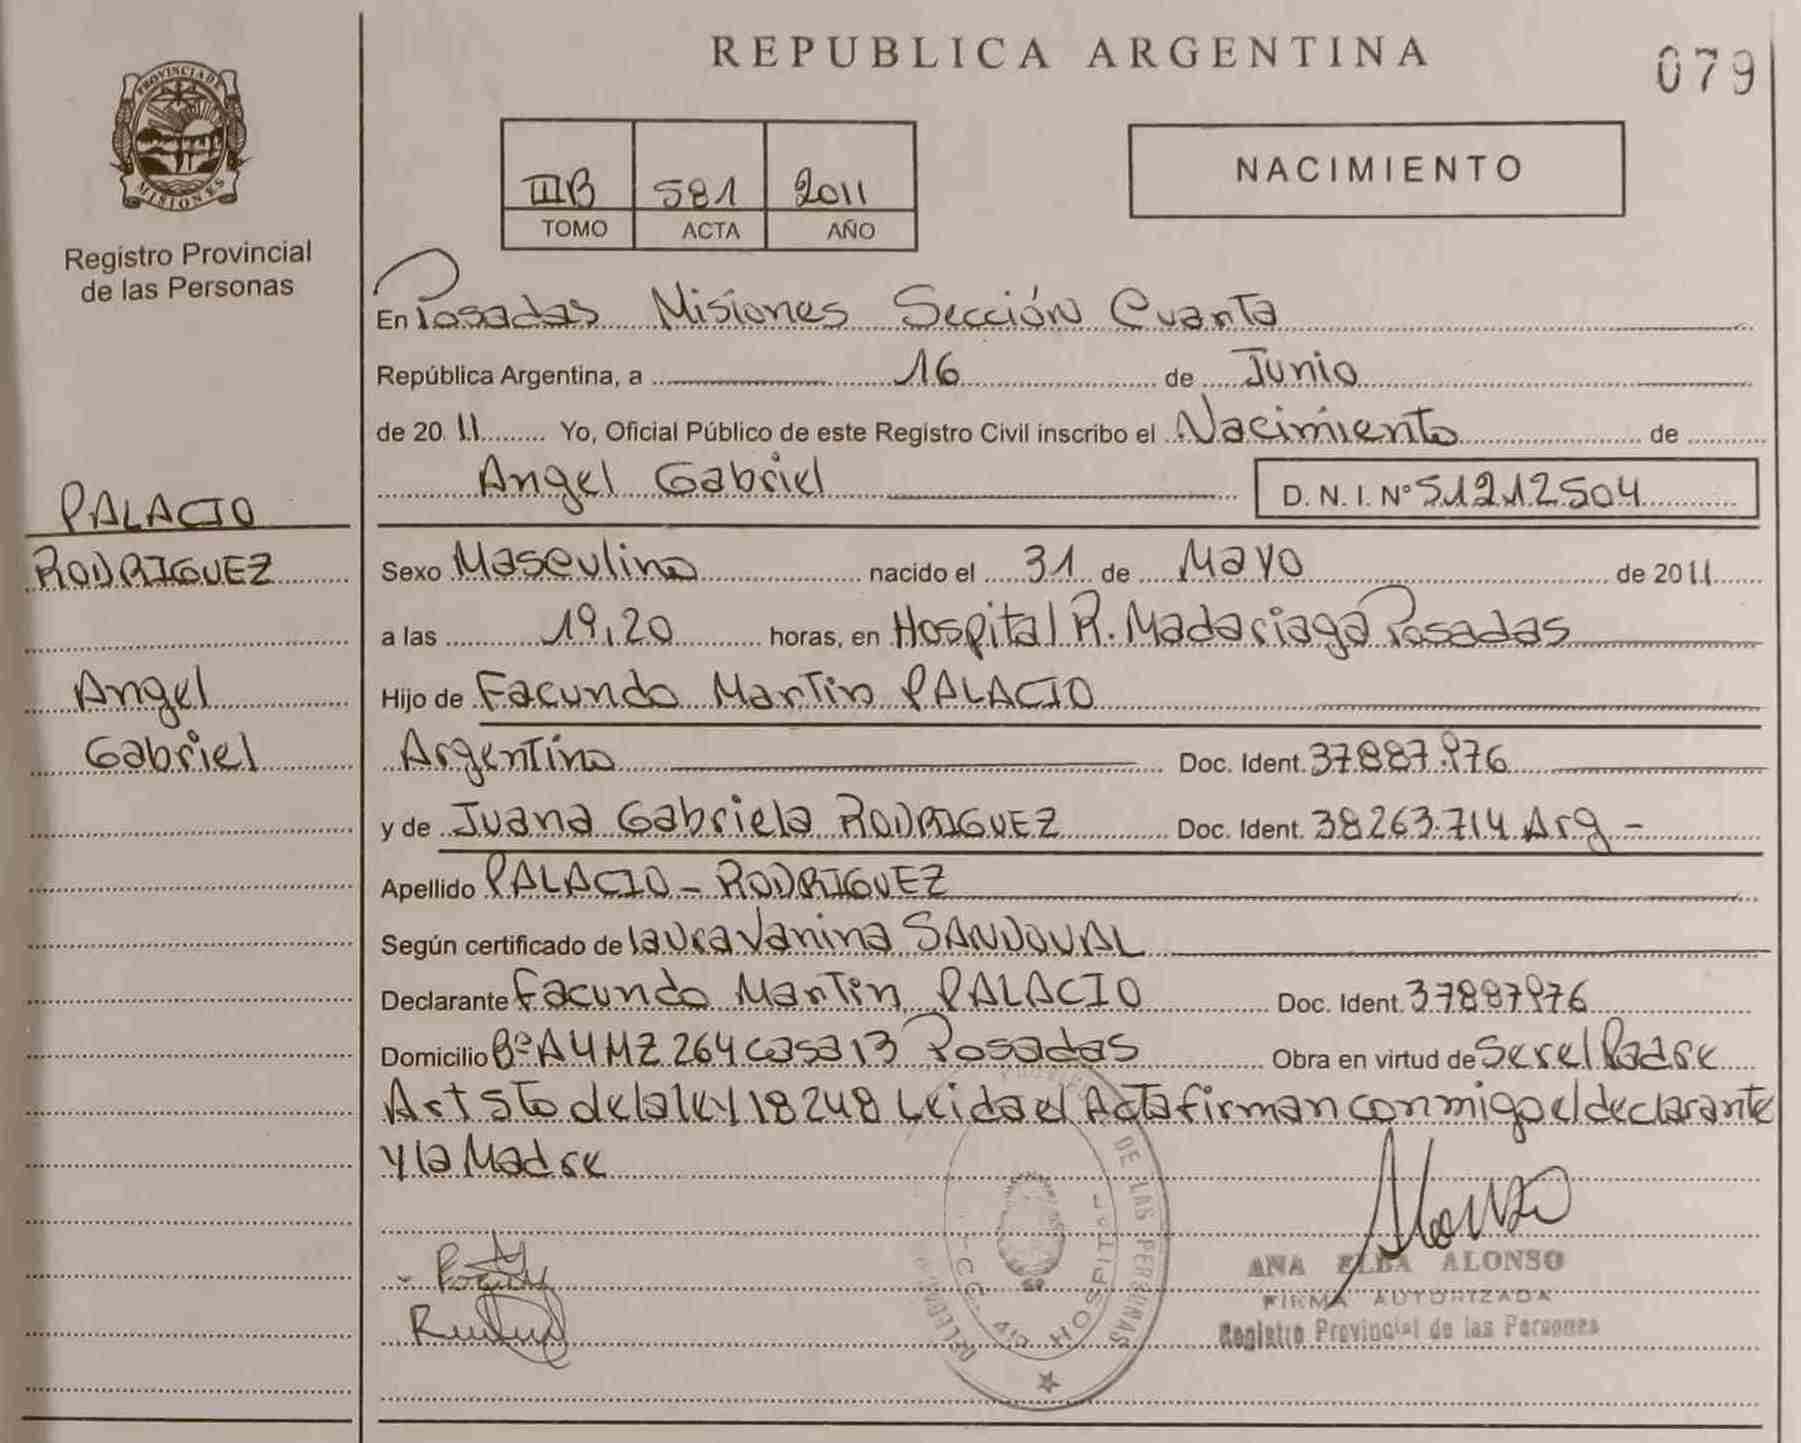 REPUBLICA ARGENTINA
079
PROVINCIA DE
MISIONES
Registro Provincial
de las Personas
IIIB 581 2011
TOMO ACTA AÑO
NACIMIENTO
En Posadas Misiones Sección Cuarta
República Argentina, a 16 de Junio
de 2011 Yo, Oficial Público de este Registro Civil inscribo el Nacimiento de
Angel Gabriel D. N. I. Nº 51212504
PALACIO
RODRIGUEZ
Angel
Gabriel
Sexo Masculino nacido el 31 de Mayo de 2011
a las 19,20 horas, en Hospital R. Madariaga Posadas
Hijo de Facundo Martin PALACIO
Argentino Doc. Ident. 37887.976
y de Juana Gabriela RODRIGUEZ Doc. Ident. 38263.714 Arg -
Apellido PALACIO - RODRIGUEZ
Según certificado de laura Vanina SANDOVAL
Declarante Facundo Martin PALACIO Doc. Ident. 37887976
Domicilio Bº A4 MZ 264 casa 13 Posadas Obra en virtud de Ser el Padre
Art 5to de la ley 18248 Leida el Acta firman conmigo el declarante
y la Madre
DE LAS PERSONAS
HOSPITAL
Alonso
ANA ELBA ALONSO
FIRMA AUTORIZADA
Registro Provincial de las Personas